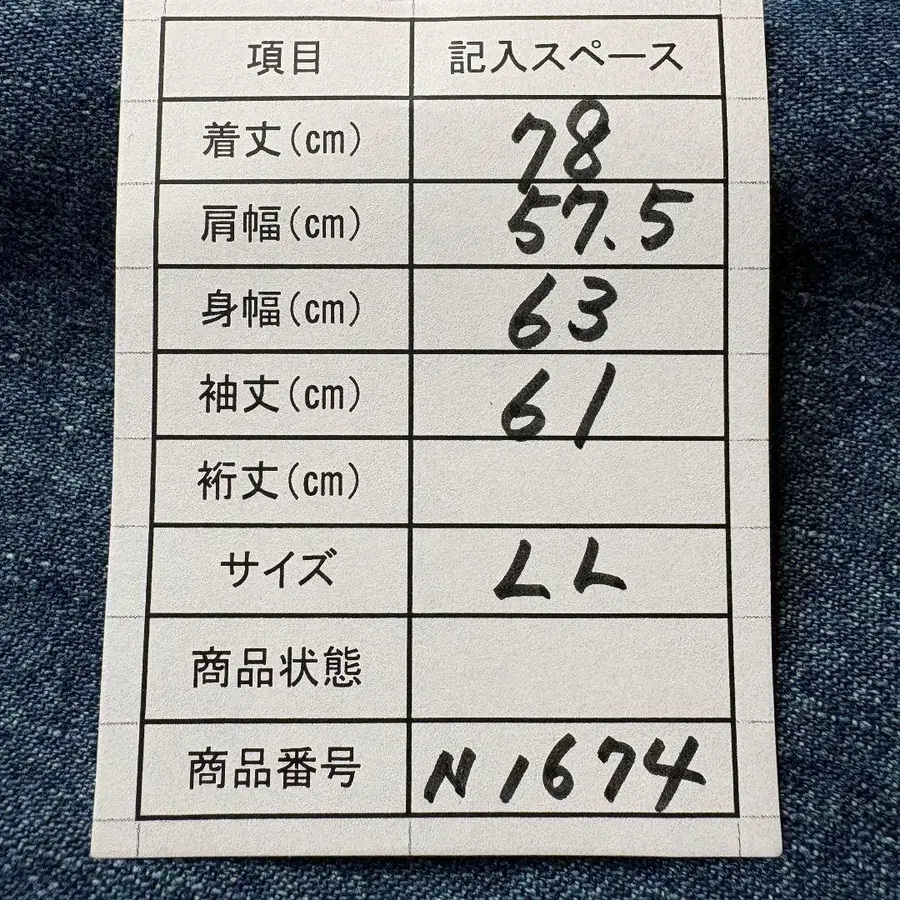 項目 記入スペース
着丈(cm) 78
肩幅(cm) 57.5
身幅(cm) 63
袖丈(cm) 61
裄丈(cm)
サイズ LL
商品状態
商品番号 N1674